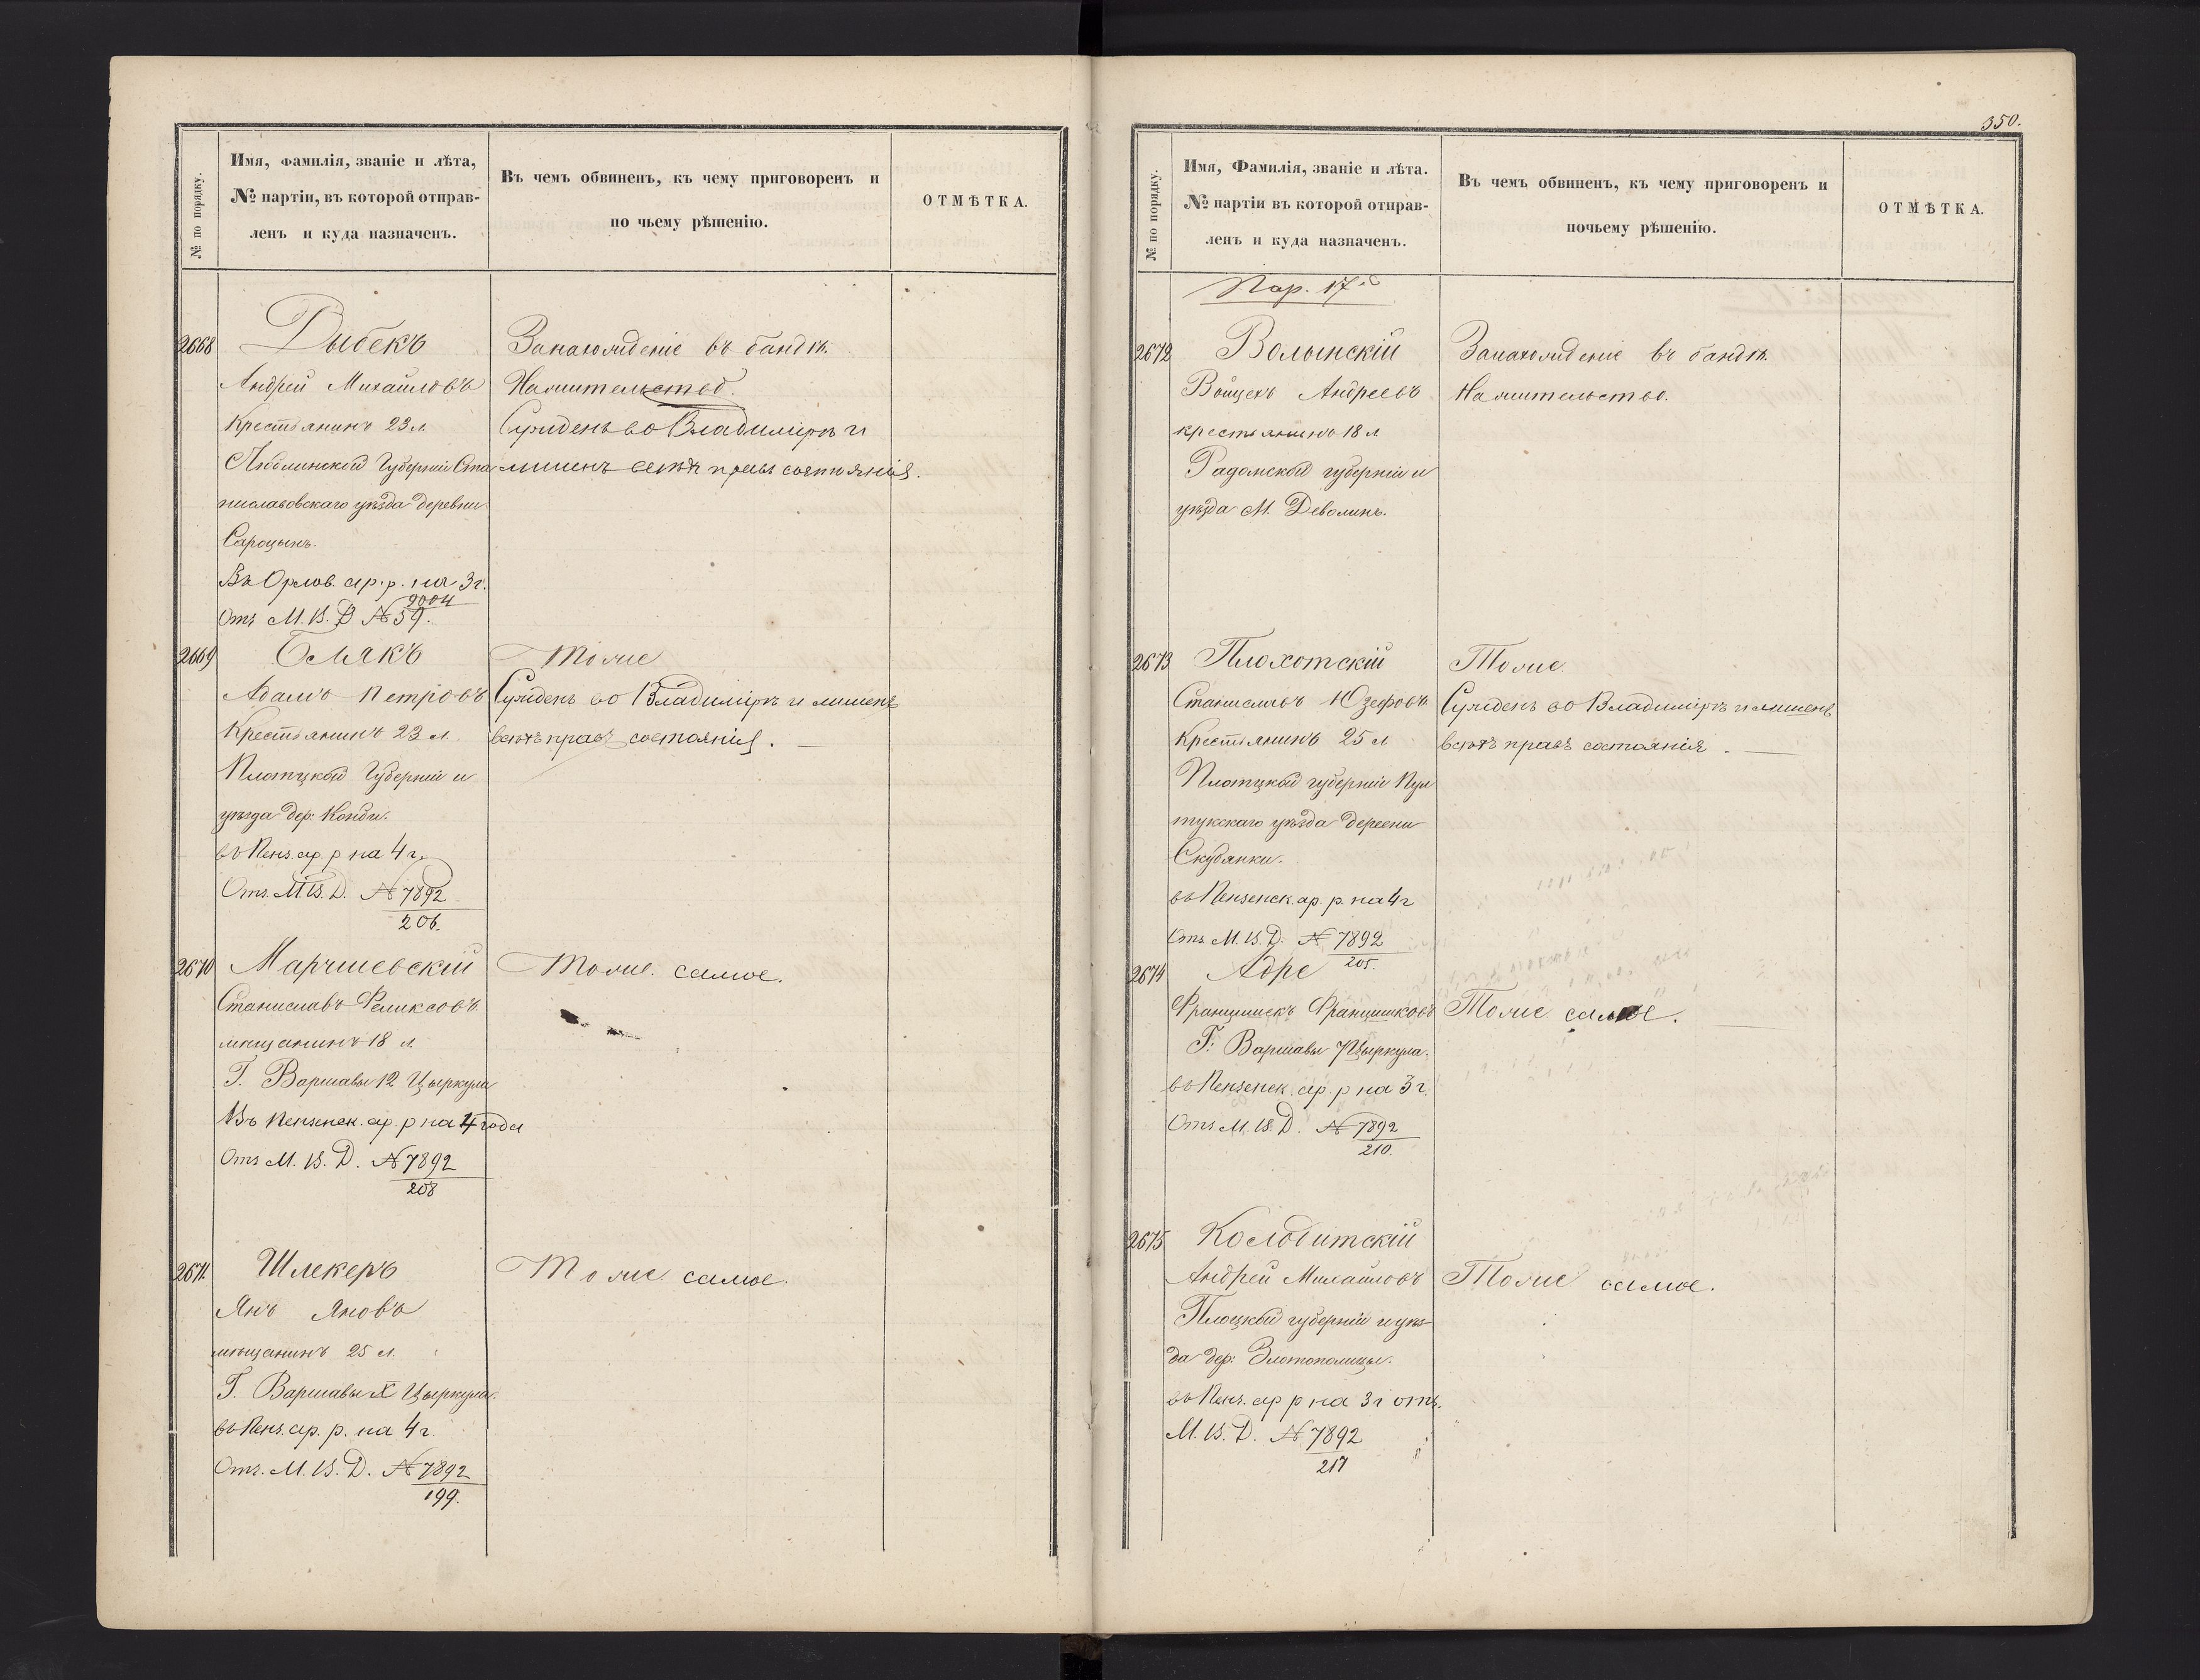 № по порядку.
Имя, Фамилія, званіе и лѣта,
№ партіи, въ которой отправ-
ленъ и куда назначенъ.
Въ чемъ обвиненъ, къ чему приговоренъ и
по чьему рѣшенію.
ОТМѢТКА.
2668
Дыбекъ
Андрей Михайловъ
Крестьянинъ 23 л
Люблинской Губерніи Ста
ниславовскаго уѣзда деревни
Сароцынъ.
Въ Орлов. ар. р. на 3 г.
2004
Отъ М. В. Д № 59.
Занахожденіе въ бандѣ.
Намительство.
Сужденъ во Владимірѣ и
лишенъ всѣхъ правъ состоянія.
2669
Омякъ
Адамъ Петровъ
Крестьянинъ 23 л.
Плотцкой Губерніи и
уѣзда дер: Конди.
въ Пенз. ар. р на 4 г.
Отъ. М. В. Д. № 7892
206.
Тоже
Сужденъ во Владимірѣ и лишенъ
всѣхъ правъ состоянія.
2670
Марчиевскій
Станиславъ Феликсовъ.
мѣщанинъ 18 л.
Г. Варшавы 12 Цыркула
Въ Пензенск. ар. р на 4 года
Отъ М. В. Д. № 7892
208
Тоже самое.
2671.
Шлекеръ
Янъ Яновъ
мѣщанинъ 25 л.
Г. Варшавы X Цыркула.
въ Пенз. ар. р. на 4 г.
Отъ. М. В. Д. № 7892
199.
Тоже самое.
350.
№ по порядку.
Имя, Фамилія, званіе и лѣта.
№ партіи въ которой отправ-
ленъ и куда назначенъ.
Въ чемъ обвиненъ, къ чему приговоренъ и
почьему рѣшенію.
ОТМѢТКА.
Пар. 17.
2672
Волынскій
Войцехъ Андреевъ
крестьянинъ 18 л
Радомской губерніи и
уѣзда М. Деволинъ.
Занахожденіе въ бандѣ.
Намительство.
2673
Плохотскій
Станиславъ Юзефовъ
Крестьянинъ 25 л
Плотцкой губерніи Пул
тукскаго уѣзда деревни
Скубянки.
въ Пензенск. ар. р. на 4 г
Отъ М. В. Д. № 7892
205.
Тоже.
Сужденъ во Владимірѣ и лишенъ
всѣхъ правъ состоянія.
2674
Адре
Францишекъ Францишковъ
Г: Варшавы 7 Цыркула.
въ Пензенск. ар. р на 3 г.
Отъ М. В. Д. № 7892
210.
Тоже самое.
2675
Колобитскій
Андрей Михайловъ
Плоцкой губерніи и уѣз
да дер: Злотополицы.
въ Пенз. ар р на 3 г отъ.
М. В. Д. № 7892
217
Тоже самое.